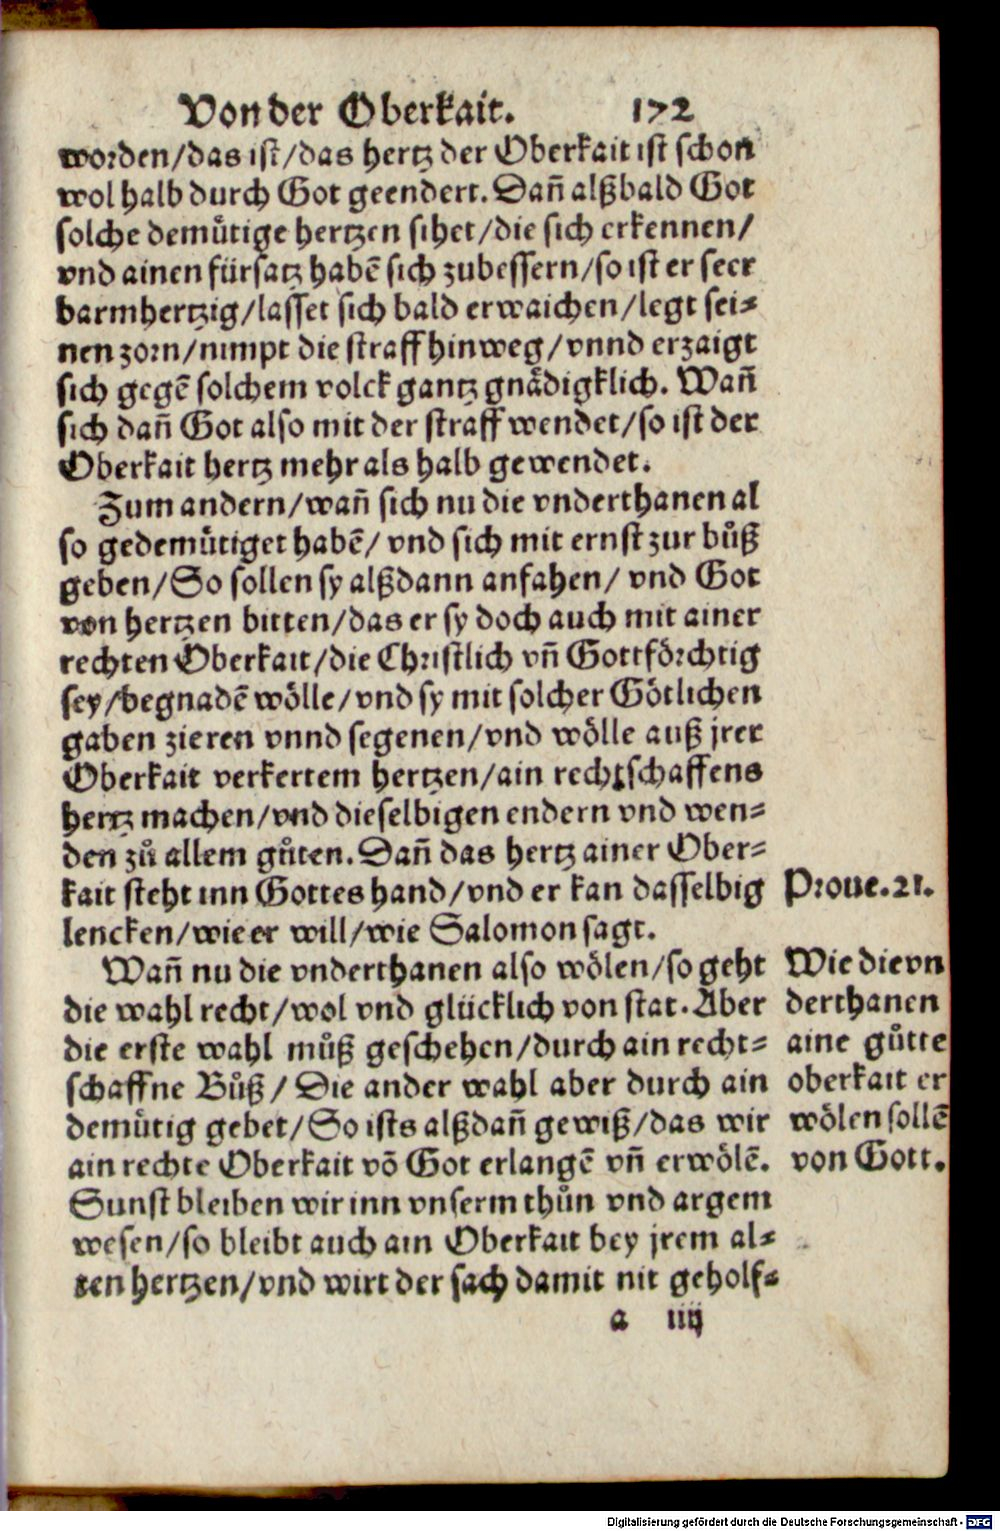 Von der Oberkait. 172
worden/das ist/das hertz der Oberkait ist schon
wol halb durch Got geendert. Dañ alßbald Got
solche demuͤtige hertzen sihet/die sich erkennen/
vnd ainen fürsatz habē sich zubessern/so ist er seer
barmhertzig/lasset sich bald erwaichen/legt sei⸗
nen zorn/nimpt die straff hinweg/vnnd erzaigt
sich gegē solchem volck gantz gnaͤdigklich. Wañ
sich dañ Got also mit der straff wendet/so ist der
Oberkait hertz mehr als halb gewendet.
Zum andern/wañ sich nu die vnderthanen al
so gedemuͤtiget habē/ vnd sich mit ernst zur buͦß
geben/So sollen sy alßdann anfahen/ vnd Got
von hertzen bitten/das er sy doch auch mit ainer
rechten Oberkait/die Christlich vñ Gottfoͤrchtig
sey/begnadē woͤlle/vnd sy mit solcher Goͤtlichen
gaben zieren vnnd segenen/vnd woͤlle auß jrer
Oberkait verkertem hertzen/ain rechtschaffens
hertz machen/vnd dieselbigen endern vnd wen⸗
den zuͦ allem guͦten. Dañ das hertz ainer Ober⸗
kait steht inn Gottes hand/vnd er kan dasselbig
lencken/wie er will/wie Salomon sagt.
Proue. 21.
Wañ nu die vnderthanen also woͤlen/so geht
die wahl recht/wol vnd glücklich von stat. Aber
die erste wahl muͦß geschehen/durch ain recht⸗
schaffne Buͦß/ Die ander wahl aber durch ain
demuͤtig gebet/So ists alßdañ gewiß/das wir
ain rechte Oberkait võ Got erlangē vñ erwoͤlē.
Sunst bleiben wir inn vnserm thuͦn vnd argem
wesen/so bleibt auch ain Oberkait bey jrem al⸗
ten hertzen/vnd wirt der sach damit nit geholf⸗
Wie die vn
derthanen
aine guͦtte
oberkait er
woͤlen sollē
von Gott.
a iiij
Digitalisierung gefördert durch die Deutsche Forschungsgemeinschaft - DFG